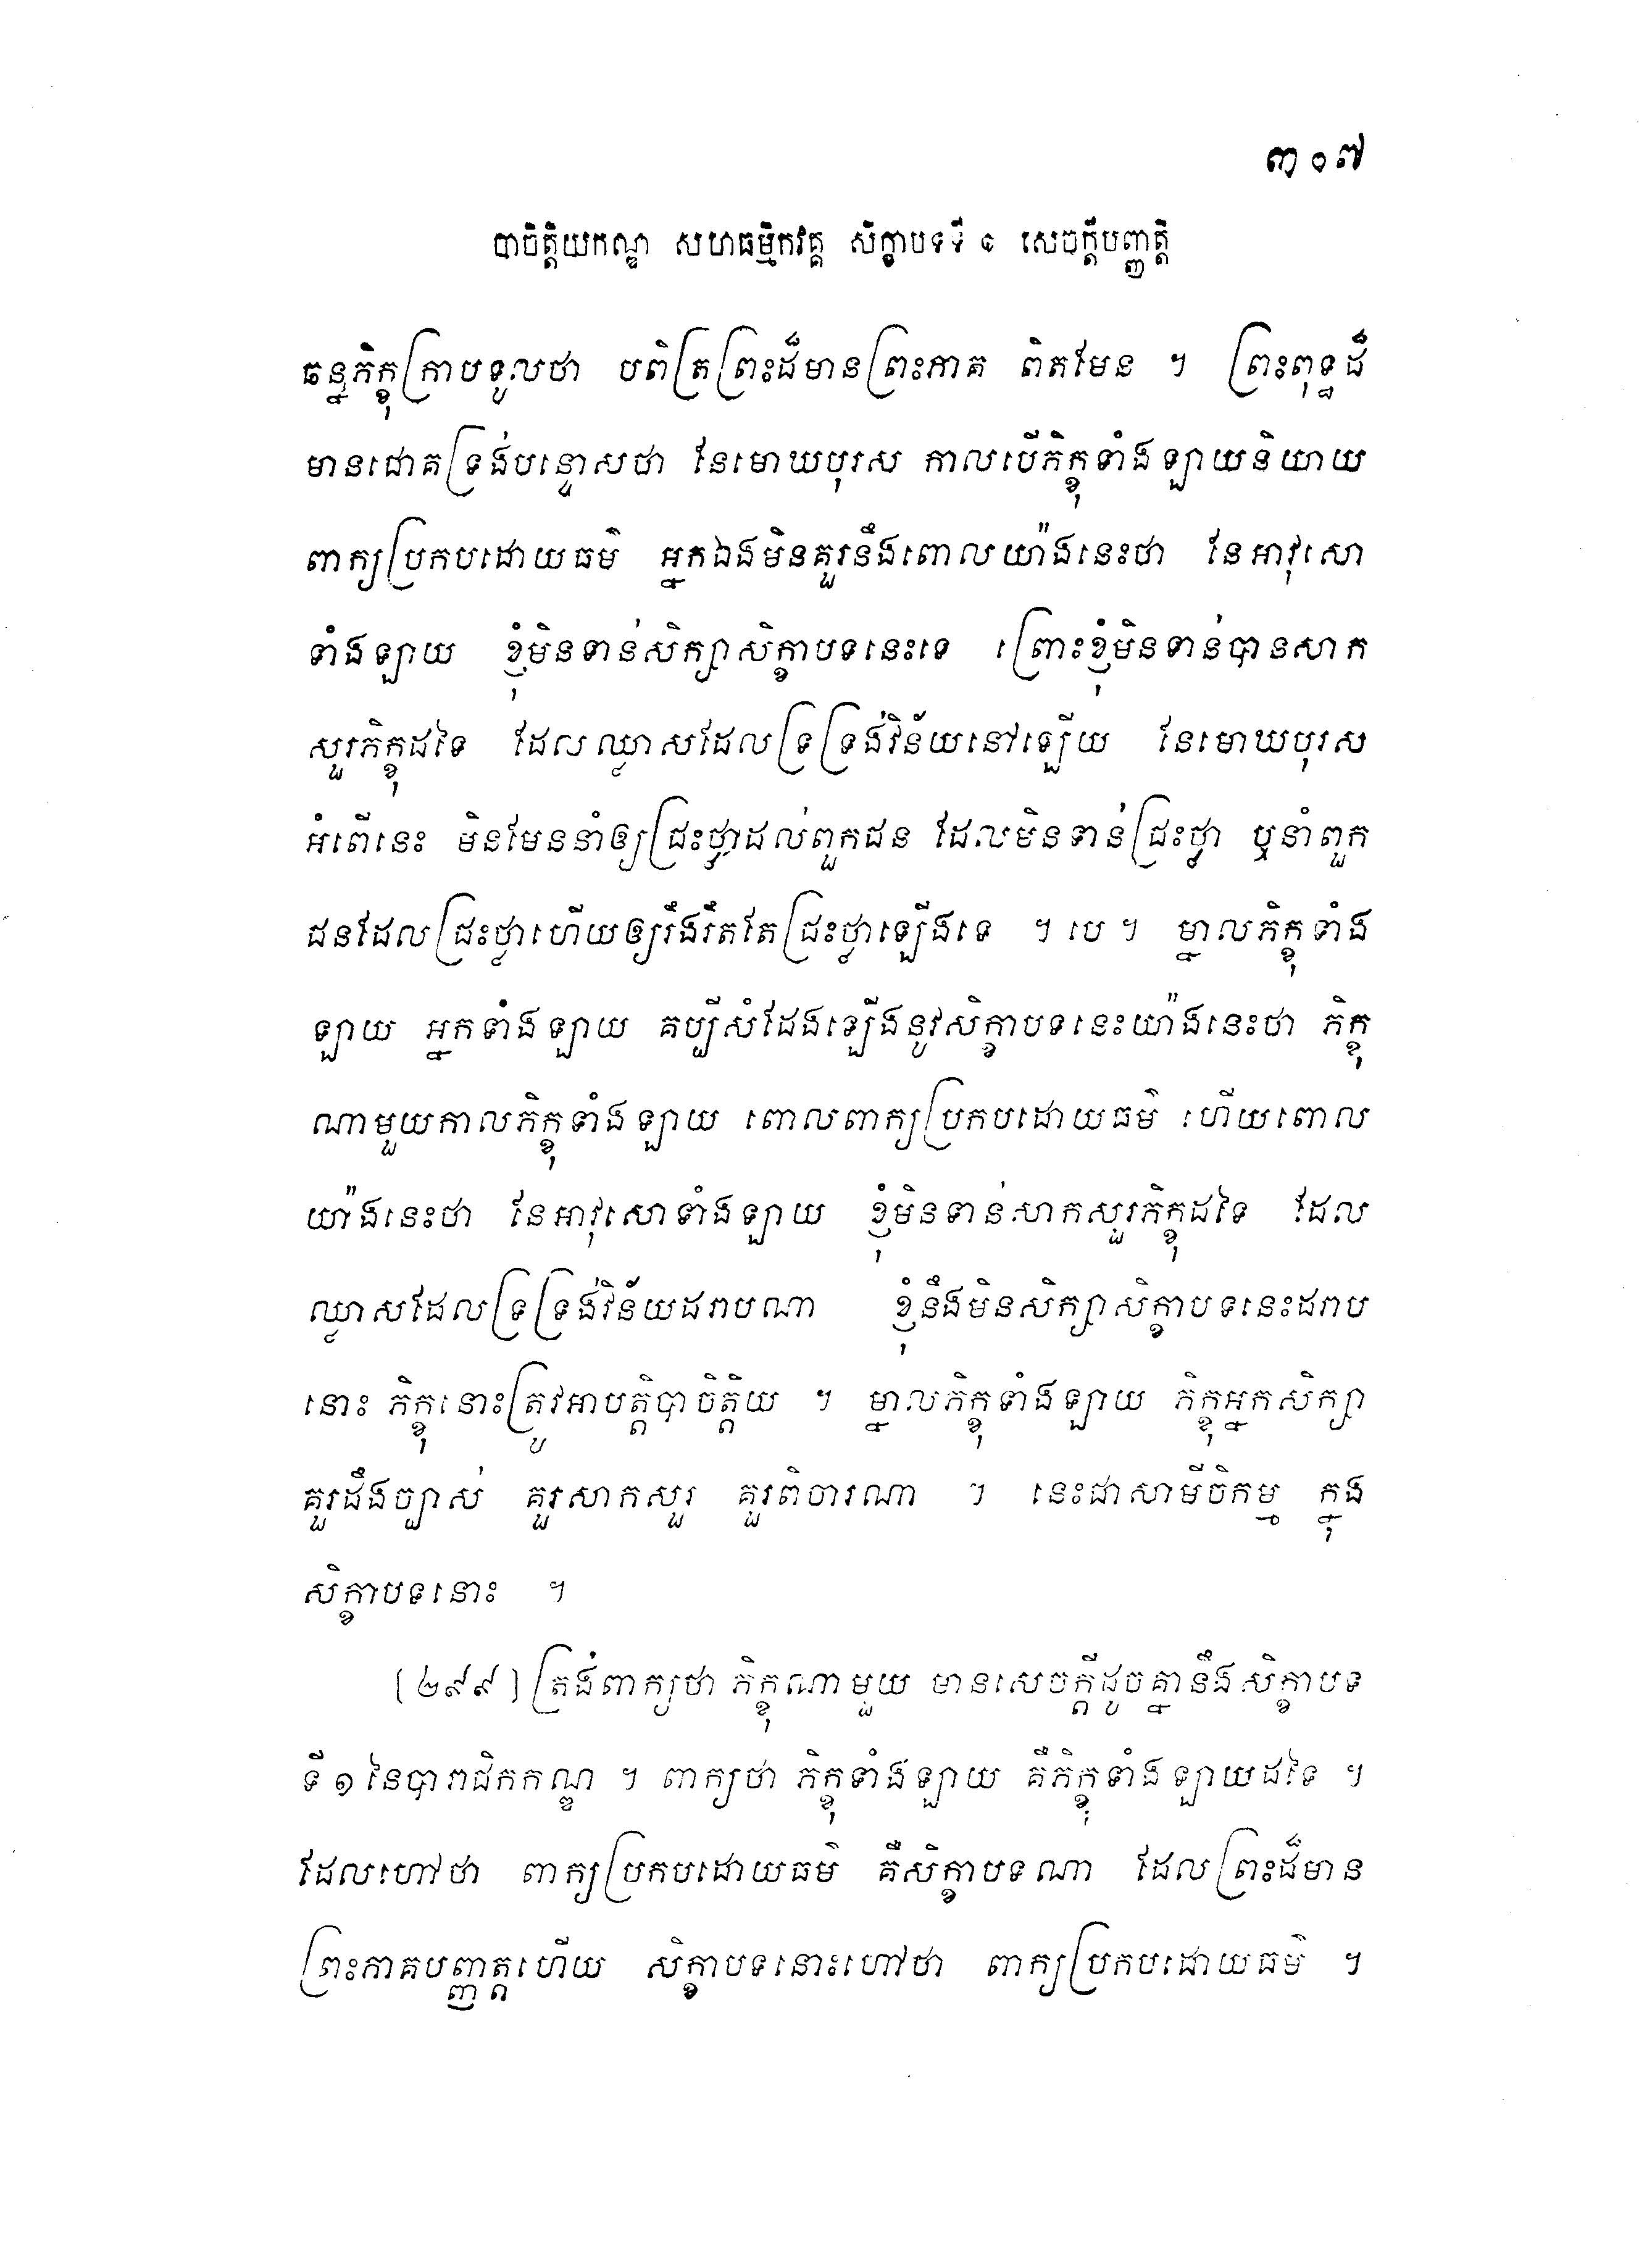 ៣០៧
បាចិត្តិយកណ្ឌ សហធម្មិកវគ្គ សិក្ខាបទទី ១ សេចក្តីបញ្ញត្តិ
ឆន្នភិក្ខុក្រាបទូលថា បពិត្រព្រះដ៏មានព្រះភាគ ពិតមែន ។ ព្រះពុទ្ធដ៏
មានជោគទ្រង់បន្ទោសថា នែមោឃបុរស កាលបើភិក្ខុទាំងឡាយនិយាយ
ពាក្យប្រកបដោយធម៌ អ្នកឯងមិនគួរនឹងពោលយ៉ាងនេះថា នែអាវុសោ
ទាំងឡាយ ខ្ញុំមិនទាន់សិក្សាសិក្ខាបទនេះទេ ព្រោះខ្ញុំមិនទាន់បានសាក
សួរភិក្ខុដទៃ ដែលឈ្លាសដែលទ្រទ្រង់វិន័យនៅឡើយ នែមោឃបុរស
អំពើនេះ មិនមែននាំឲ្យជ្រះថ្លាដល់ពួកជន ដែលមិនទាន់ជ្រះថ្លា ឬនាំពួក
ជនដែលជ្រះថ្លាហើយឲ្យរឹងរឹតតែជ្រះថ្លាឡើងទេ ។ បេ ។ ម្នាលភិក្ខុទាំង
ឡាយ អ្នកទាំងឡាយ គប្បីសំដែងឡើងនូវសិក្ខាបទនេះយ៉ាងនេះថា ភិក្ខុ
ណាមួយកាលភិក្ខុទាំងឡាយ ពោលពាក្យប្រកបដោយធម៌ ហើយពោល
យ៉ាងនេះថា នែអាវុសោទាំងឡាយ ខ្ញុំមិនទាន់សាកសួរភិក្ខុដទៃ ដែល
ឈ្លាសដែលទ្រទ្រង់វិន័យដរាបណា ខ្ញុំនឹងមិនសិក្សាសិក្ខាបទនេះដរាប
នោះ ភិក្ខុនោះត្រូវអាបត្តិបាចិត្តិយ ។ ម្នាលភិក្ខុទាំងឡាយ ភិក្ខុអ្នកសិក្សា
គួរដឹងច្បាស់ គួរសាកសួរ គួរពិចារណា ។ នេះជាសាមីចិកម្ម ក្នុង
សិក្ខាបទនោះ ។
[២៩៩] ត្រង់ពាក្យថា ភិក្ខុណាមួយ មានសេចក្តីដូចគ្នានឹងសិក្ខាបទ
ទី ១ នៃបារាជិកកណ្ឌ ។ ពាក្យថា ភិក្ខុទាំងឡាយ គឺភិក្ខុទាំងឡាយដទៃ ។
ដែលហៅថា ពាក្យប្រកបដោយធម៌ គឺសិក្ខាបទណា ដែលព្រះដ៏មាន
ព្រះភាគបញ្ញត្តហើយ សិក្ខាបទនោះហៅថា ពាក្យប្រកបដោយធម៌ ។